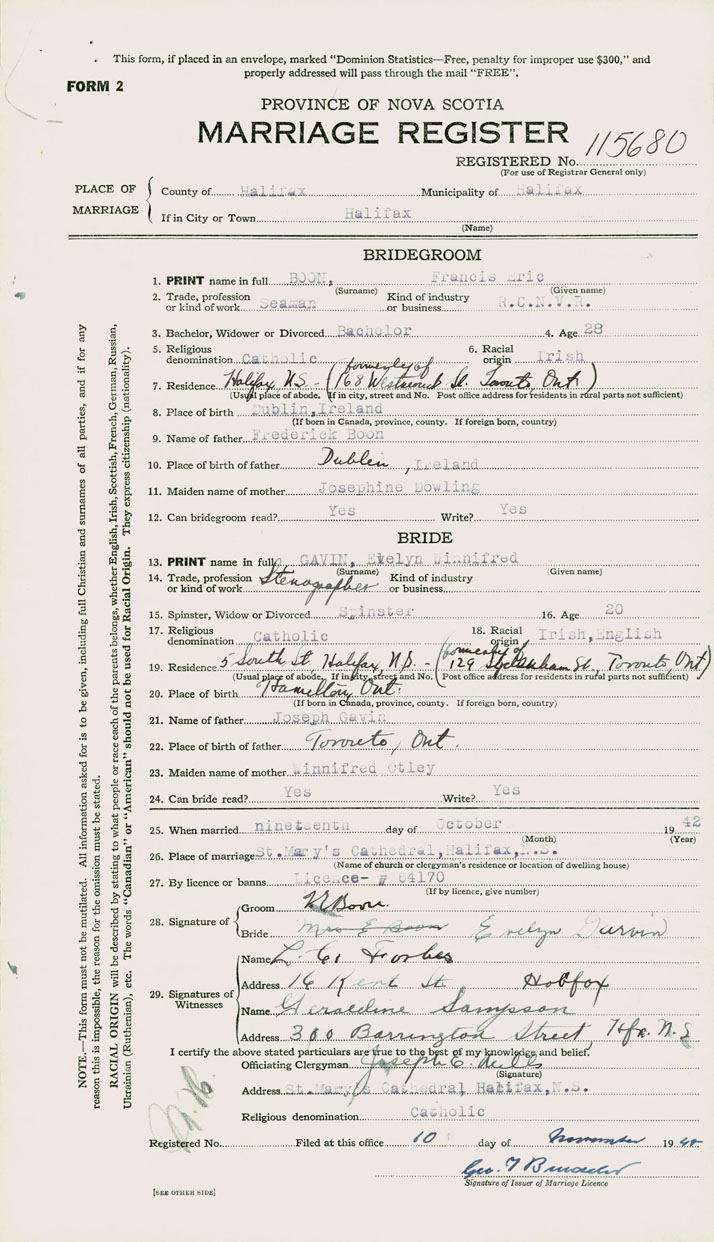 This form, if placed in an envelope, marked "Dominion Statistics—Free, penalty for improper use $300," and
properly addressed will pass through the mail "FREE".
FORM 2
PROVINCE OF NOVA SCOTIA
MARRIAGE REGISTER
REGISTERED No. 115680
(For use of Registrar General only)
PLACE OF MARRIAGE
County of Halifax Municipality of Halifax
If in City or Town Halifax
(Name)
BRIDEGROOM
1. PRINT name in full BOON, Francis Eric
(Surname) (Given name)
2. Trade, profession or kind of work Seaman Kind of industry or business R.C.N.V.R.
3. Bachelor, Widower or Divorced Bachelor 4. Age 28
5. Religious denomination Catholic 6. Racial origin Irish
7. Residence Halifax, N.S. - (formerly of 168 St. Toronto, Ont)
(Usual place of abode. If in city, street and No. Post office address for residents in rural parts not sufficient)
8. Place of birth Dublin, Ireland
(If born in Canada, province, county. If foreign born, country)
9. Name of father Frederick Boon
10. Place of birth of father Dublin, Ireland
11. Maiden name of mother Josephine Dowling
12. Can bridegroom read? Yes Write? Yes
BRIDE
13. PRINT name in full GAVIN, Evelyn Winnifred
(Surname) (Given name)
14. Trade, profession or kind of work Stenographer Kind of industry or business
15. Spinster, Widow or Divorced Spinster 16. Age 20
17. Religious denomination Catholic 18. Racial origin Irish, English
19. Residence 5 South St. Halifax, N.S. - (formerly of 129 St., Toronto, Ont)
(Usual place of abode. If in city, street and No. Post office address for residents in rural parts not sufficient)
20. Place of birth Hamilton, Ont.
(If born in Canada, province, county. If foreign born, country)
21. Name of father Joseph Gavin
22. Place of birth of father Toronto, Ont.
23. Maiden name of mother Winnifred Otley
24. Can bride read? Yes Write? Yes
25. When married nineteenth day of October 19 42
(Month) (Year)
26. Place of marriage St. Mary's Cathedral, Halifax, N.S.
(Name of church or clergyman's residence or location of dwelling house)
27. By licence or banns Licence- # 64170
(If by licence, give number)
28. Signature of
Groom Boon.
Bride Mrs E Boon Evelyn
29. Signatures of Witnesses
Name Forbes
Address 16 Kent St
Name Geraldine Sampson
Address 300 Barrington Street Hfx. N.S
I certify the above stated particulars are true to the best of my knowledge and belief.
Officiating Clergyman Joseph E. Mills
(Signature)
Address St. Mary's Cathedral Halifax, N.S.
Religious denomination Catholic
Registered No. Filed at this office 10 day of November 19
Geo. T
Signature of Issuer of Marriage Licence
[SEE OTHER SIDE]
NOTE.—This form must not be mutilated. All information asked for is to be given, including full Christian and surnames of all parties, and if for any
reason this is impossible, the reason for the omission must be stated.
RACIAL ORIGIN will be described by stating to what people or race each of the parents belongs, whether English, Irish, Scottish, French, German, Russian,
Ukrainian (Ruthenian), etc. The words "Canadian" or "American" should not be used for Racial Origin. They express citizenship (nationality).